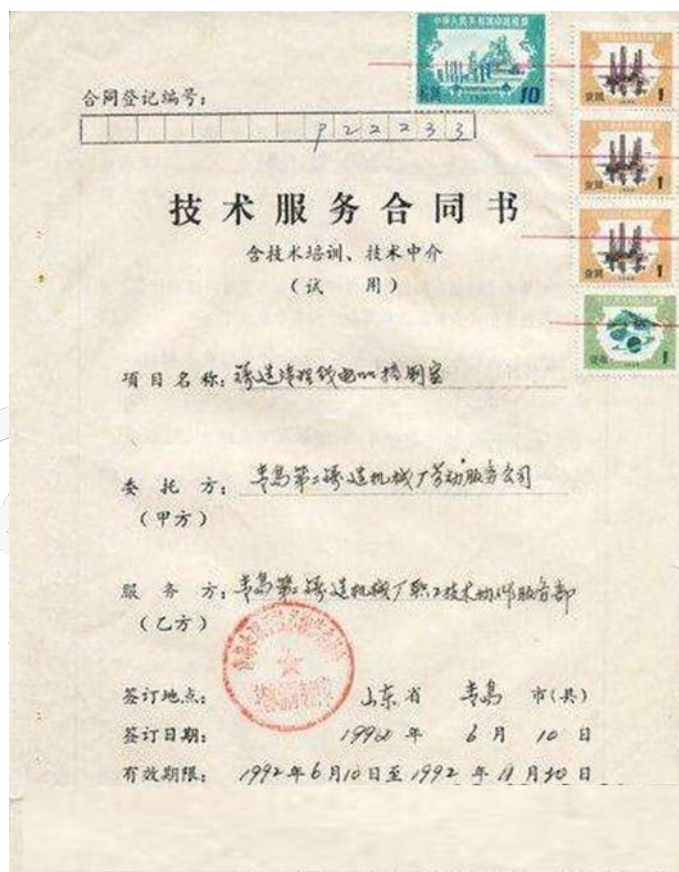 中华人民共和国印花税票
拾圆 10
壹圆 1
壹圆 1
壹圆 1
1
合同登记编号：
922233
技术服务合同书
含技术培训、技术中介
（试 用）
项目名称：铸造 线电 控制室
委托方：青岛第二铸造机械厂劳动服务公司
（甲方）
服务方：青岛第二铸造机械厂职工技术协作服务部
（乙方）
签订地点： 山东省 青岛 市（县）
签订日期： 1992年 6月 10日
有效期限： 1992年6月10日至1992年11月30日